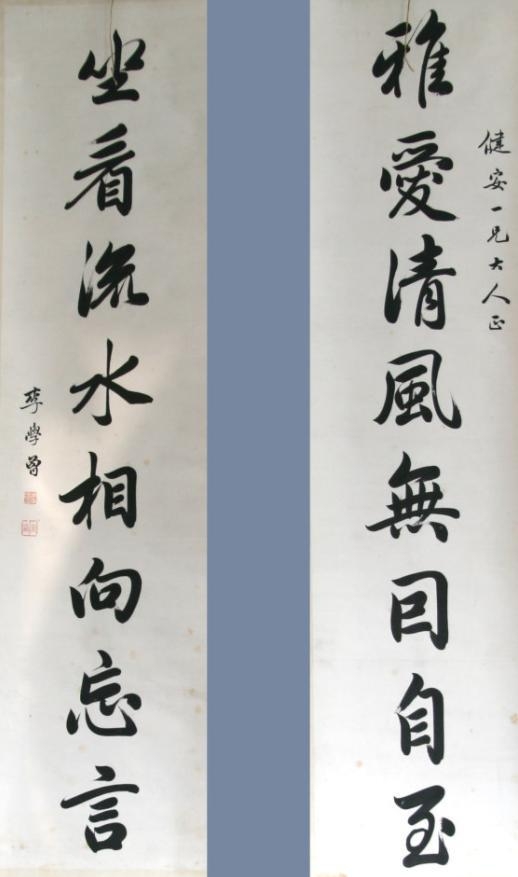 健安一兄大人正
雅愛清風無囙自至
坐看流水相向忘言
李學曾